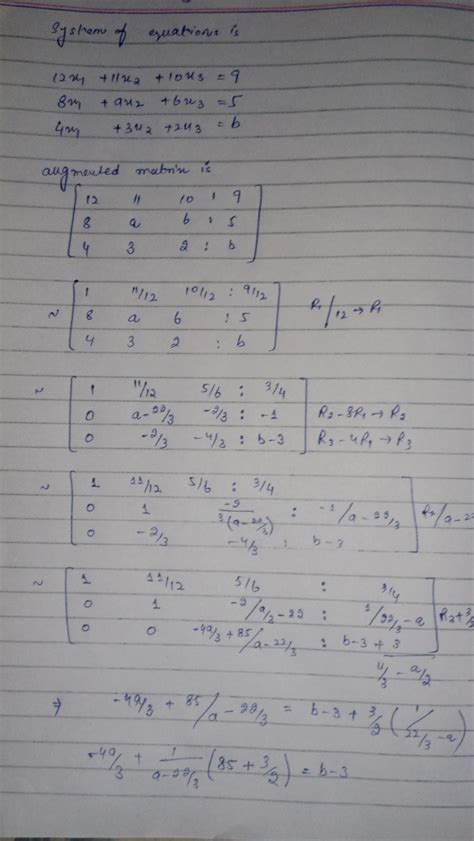 System of equations is
12x₁ + 11x₂ + 10x₃ = 9
8x₁ + ax₂ + 6x₃ = 5
4x₁ + 3x₂ + 2x₃ = b
augmented matrix is
12 11 10 : 9
8 a 6 : 5
4 3 2 : b
~ 1 11/12 10/12 : 9/12
8 a 6 : 5 R₁/12 → R₁
4 3 2 : b
~ 1 11/12 5/6 : 3/4
0 a-22/3 -2/3 : -1 R₂-8R₁ → R₂
0 -2/3 -4/3 : b-3 R₃-4R₁ → R₃
~ 1 11/12 5/6 : 3/4
0 1 -2/3(a-22/3) : -1/a-22/3 R₂/a-22
0 -2/3 -4/3 : b-3
~ 1 11/12 5/6 : 3/4
0 1 -2/a/2-22 : 1/22/3-a R₂+3/2
0 0 -4a/3+85/a-22/3 : b-3+3
11/3-a/2
⇒ -4a/3 + 85/a-22/3 = b-3+3/2(1/22/3-a)
-4a/3 + 1/a-22/3(85+3/2) = b-3